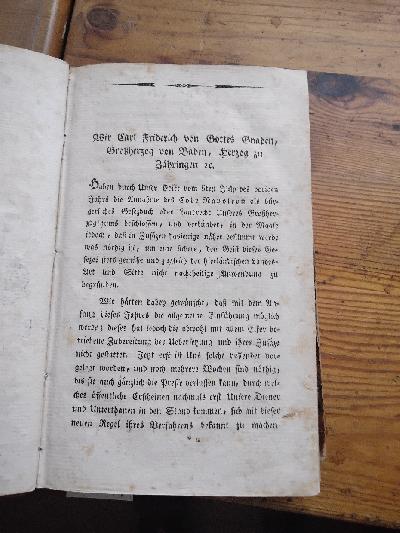 Wir Carl Friderich von Gottes Gnaden,
Großherzog von Baden, Herzog zu
Zähringen ꝛc.
Haben durch Unser Edikt vom 5ten July des vorigen
Jahrs die Annahme des Code Napoleon als bür-
gerliches Gesezbuch oder Landrecht Unseres Großher-
zogthums beschlossen, und verkündet, in der Maaße
jedoch: daß in Zusäzen dasjenige näher bestimmt werde
was nöthig ist, um eine sichere, den Geist dieses Ge-
sezes stets gemäße und zugleich der herländischen Landes-
Art und Sitte nicht nachtheilige Anwendung zu
begründen.
Wir hätten dabey gewünscht, daß mit dem An-
fang dieses Jahres die allgemeine Einführung möglich
werde; dieses hat jedoch die obwohl mit allem Eifer be-
triebene Zubereitung der Uebersetzung und ihrer Zusäze
nicht gestattet. Jezt erst ist Uns solche vollendet vor-
gelegt worden, und noch mehrere Wochen sind nöthig,
bis sie auch gänzlich die Presse verlassen kann, durch wel-
ches öffentliche Erscheinen nachmals erst Unsere Diener
und Unterthanen in den Stand kommen, sich mit dieser
neuen Regel ihres Verfahrens bekannt zu machen.